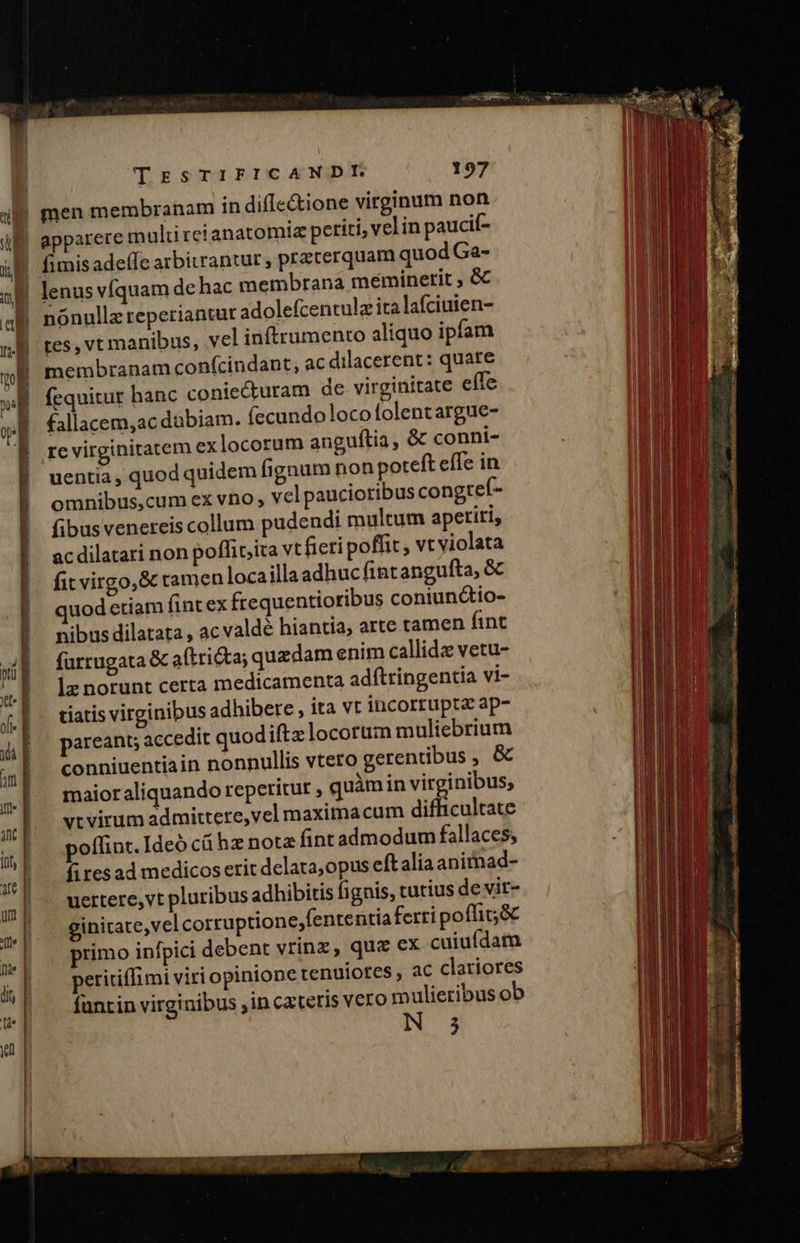 TESTIFICANDI. 197
men membranam in diſſectione virginum non
apparere multi rei anatomiæ periti, vel in pauciſ-
ſimis adeſſe arbitrantur, præterquam quod Ga-
lenus vſquam de hac membrana meminerit, &
nõnullæ reperiantur adoleſcentulæ ita laſciuien-
tes, vt manibus, vel inſtrumento aliquo ipſam
membranam conſcindant, ac dilacerent: quare
ſequitur hanc coniecturam de virginitate eſſe
fallacem, ac dubiam. ſecundo loco ſolent argue-
re virginitatem ex locorum anguſtia, & conni-
uentia, quod quidem ſignum non poteſt eſſe in
omnibus, cum ex vno, vel paucioribus congreſ-
ſibus venereis collum pudendi multum aperiri,
ac dilatari non poſſit, ita vt fieri poſſit, vt violata
ſit virgo, & tamen loca illa adhuc ſint anguſta, &
quod etiam ſint ex frequentioribus coniunctio-
nibus dilatata, ac valdè hiantia, arte tamen ſint
ſurrugata & aſtricta; quædam enim callidæ vetu-
læ norunt certa medicamenta adſtringentia vi-
tiatis virginibus adhibere, ita vt incorruptæ ap-
pareant; accedit quod iſtæ locorum muliebrium
conniuentia in nonnullis vtero gerentibus, &
maior aliquando reperitur, quàm in virginibus,
vt virum admittere, vel maxima cum difficultate
poſſint. Ideò cũ hæ notæ ſint admodum fallaces,
ſi res ad medicos erit delata, opus eſt alia animad-
uertere, vt pluribus adhibitis ſignis, tutius de vir-
ginitate, vel corruptione, ſententia ferri poſſit; &
primo inſpici debent vrinæ, quæ ex cuiuſdam
peritiſſimi viri opinione tenuiores, ac clariores
ſunt in virginibus, in cæteris vero mulieribus ob
N 3